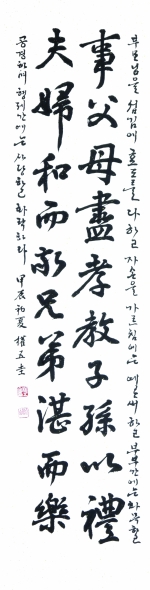 부모님을 섬김에 효도를 다하고 자손을 가르침에는 예로써 하고 부부간에는 화목하며
事父母盡孝教子孫以禮
夫婦和而敬兄弟湛而樂
공경하며 형제간에는 사랑하고 화락하라 甲辰 初夏 權五